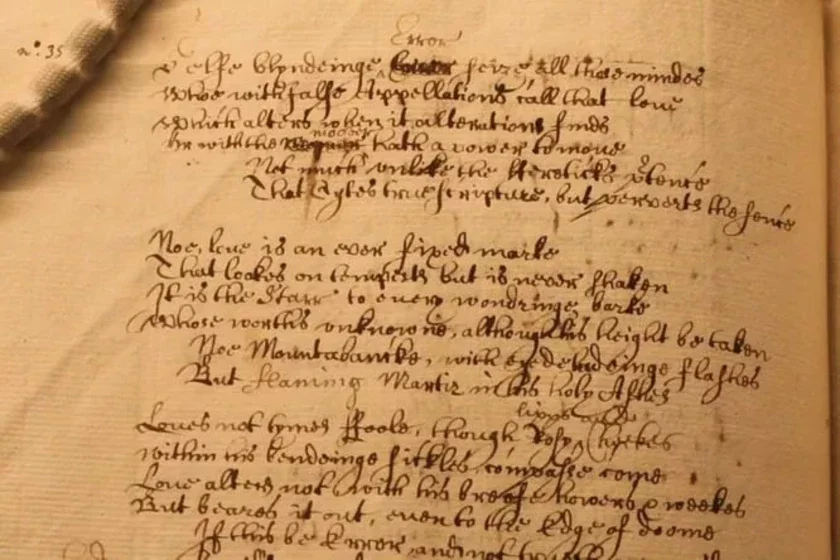 Error
no: 35
Selfe blyndeinge seize all those mindes
Whoe with false Appellations call that love
Which alters when it alterations finds
Or with the mover hath a power to move
Not much unlike the Hereticks ptence
That Cytes true scripture, but perverts the sence
Noe, love is an ever fixed marke
That lookes on tempests but is never shaken
It is the Starr to every wondringe barke
Whose worths unknowne, although his height be taken
Noe Mountabancke, with eye deludeinge flashes
But flaming Martir in his holy Ashes
lipps and
Loves not tymes Foole, though Rosy Cheekes
within his bendeinge sickles compasse come
Love alters not with his breife howers & weekes
But beares it out, even to the Edge of doome
If this be Error, and not